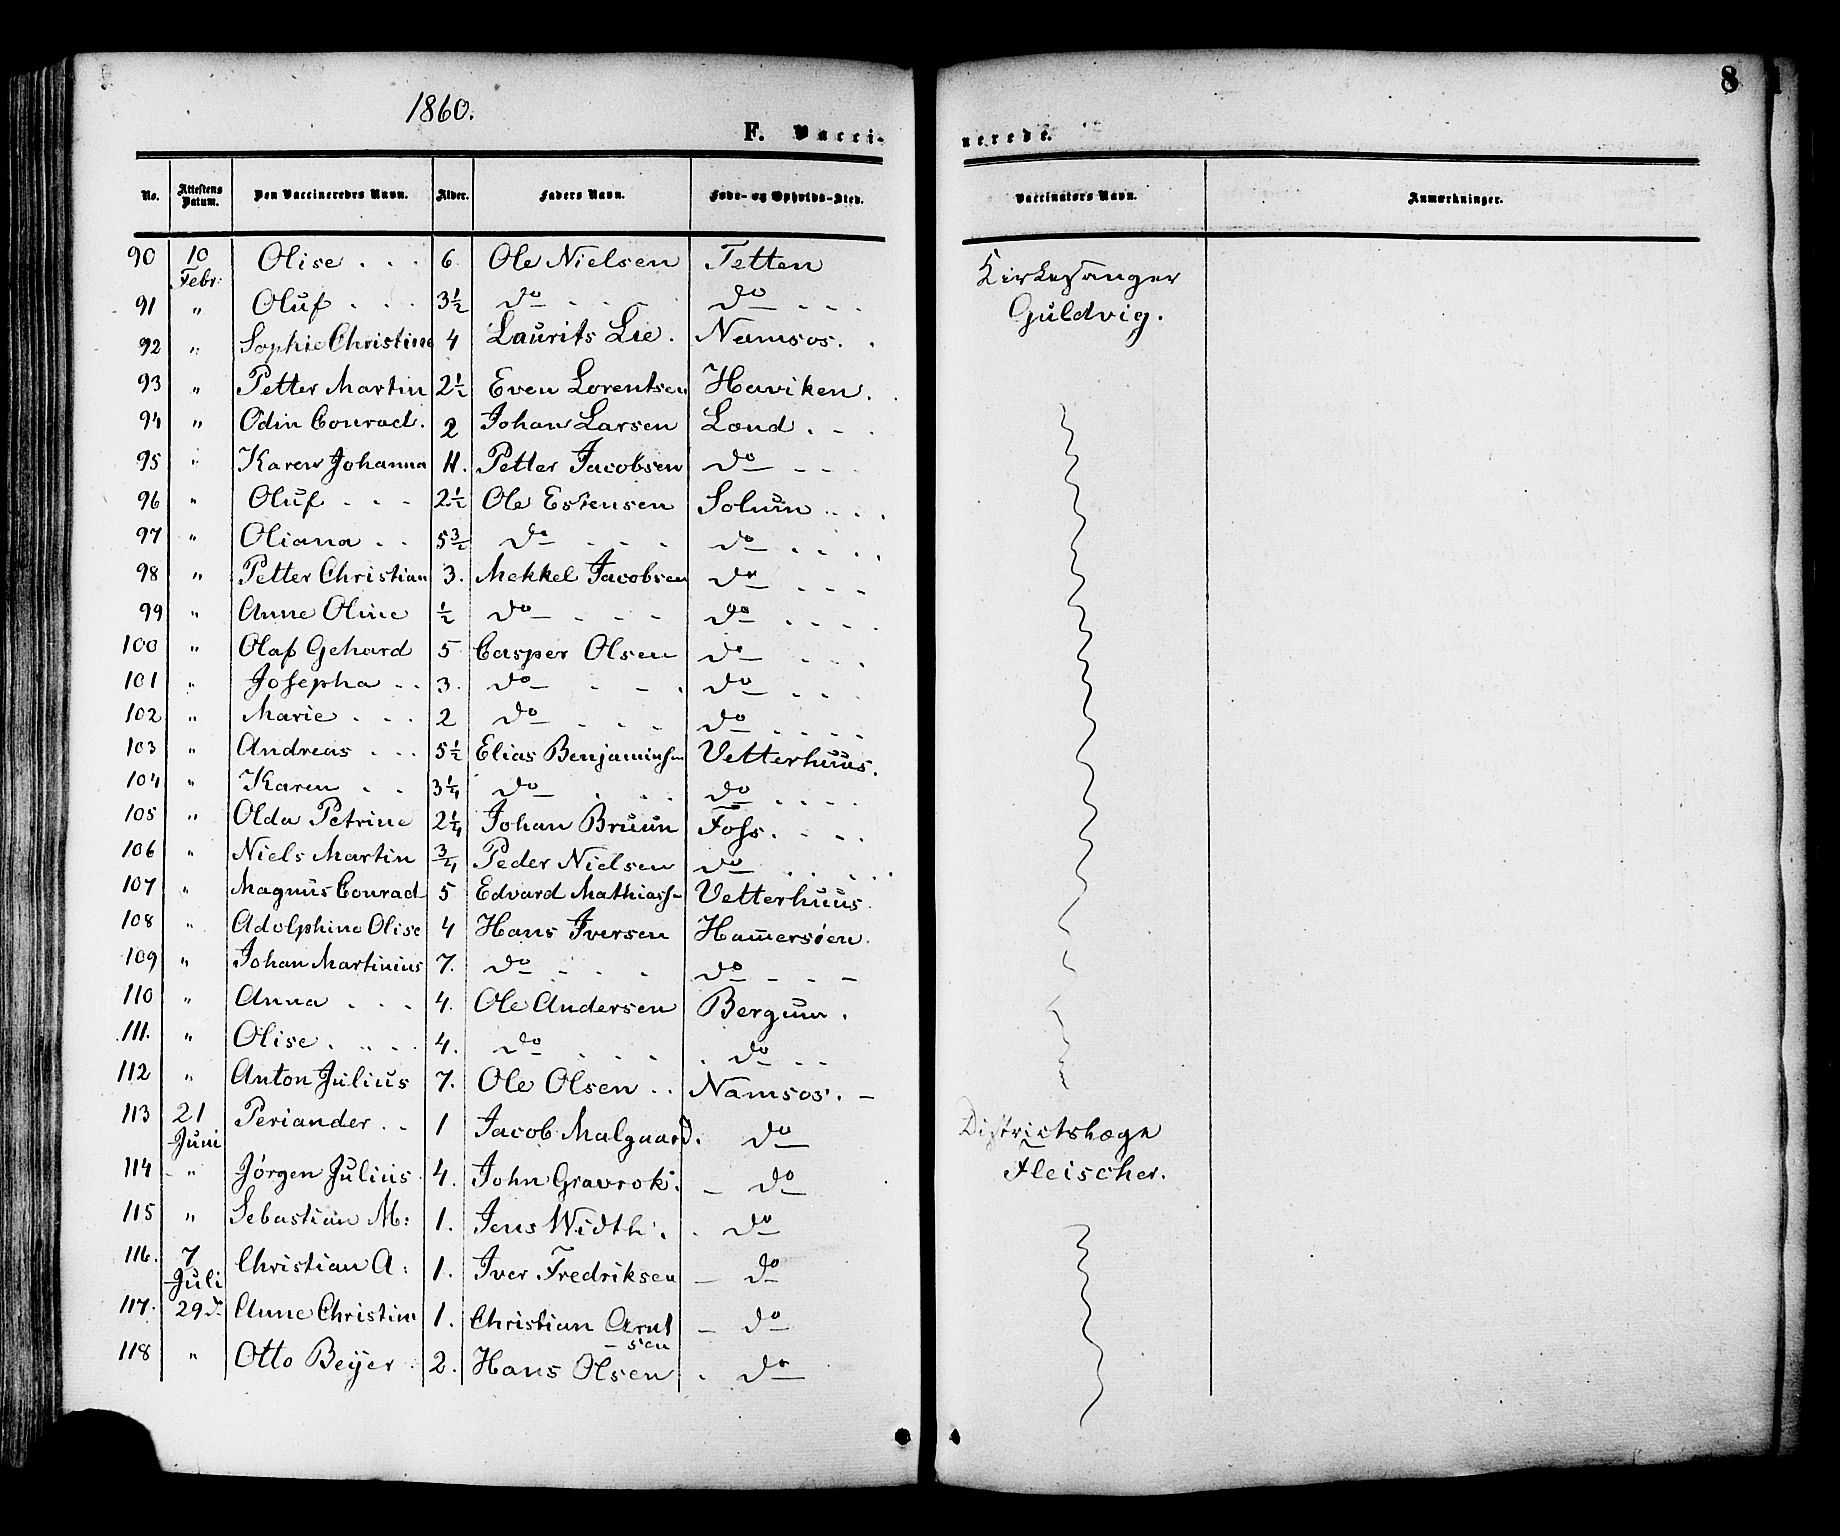 1860.
8
F. Vacci-
nerede.
No. Attestens Datum. Den Vaccineredes Navn. Alder. Faders Navn. Føde- og Opholds-Sted. Vaccinators Navn. Anmærkninger.
90 10 Febr: Olise . . . 6. Ole Nielsen Tetten Kirkesanger
91 " Oluf . . . 3½ do . . . do . . . Guldvig.
92 " Sophie Christine 4 Laurits Lie. Namsos. .
93 " Petter Martin 2½ Even Lorentsen Haviken. .
94 " Odin Conrad. 2 Johan Larsen Lænd. - .
95 " Karen Johanna 11. Petter Jacobsen do - -
96 " Oluf . . . 2½ Ole Estensen Solum . . .
97 " Oliana . . 5 3/2 do . . . do . . . .
98 " Petter Christian 3. Mekkel Jacobsen do . . .
99 " Anne Oline ½ do . . . do . . . .
100 " Olaf Gehard 5 Casper Olsen do . . .
101 " Josepha . . 3. do . . . do . . .
102 " Marie . . . 2 do . . . do . . . .
103 " Andreas . . . 5½ Elias Benjaminsn Vetterhuus.
104 " Karen . . 3¼ do . . . do . . . .
105 " Olda Petrine 2¼ Johan Bruun Foss. . . .
106 " Niels Martin ¾ Peder Nielsen do . . . .
107 " Magnus Conrad 5 Edvard Mathiass- Vetterhuus.
108 " Adolphine Olise 4 Hans Iversen Hamersøen.
109 " Johan Martinius 7. do . . . do - - -
110 " Anna . . . 4. Ole Andersen Bergum.
111. " Olise. . . . 4. do . . . . do . .
112 " Anton Julius 7. Ole Olsen . . Namsos. -
113 21 Juni Periander . . 1 Jacob Malgaard. do Districtslæge
114 " Jørgen Julius 4. John Gravrok. - do Fleischer.
115 " Sebastian M: 1. Jens Width. . do
116. 7 Juli Christian A: 1. Iver Fredriksen - do
117. 29 d. Anne Christine 1. Christian Arnt
-sen - do
118 " Otto Beyer 2. Hans Olsen . do